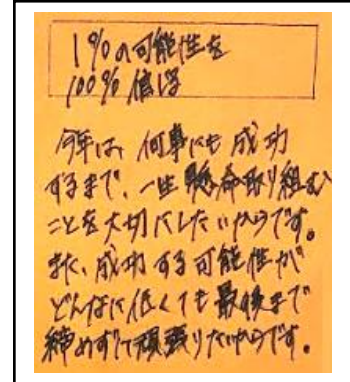 1%の可能性を
100%信じる
今年は、何事にも成功
するまで、一生懸命取り組む
ことを大切にしたいからです。
また、成功する可能性が
どんなに低くても最後まで
締めずに頑張りたいからです。